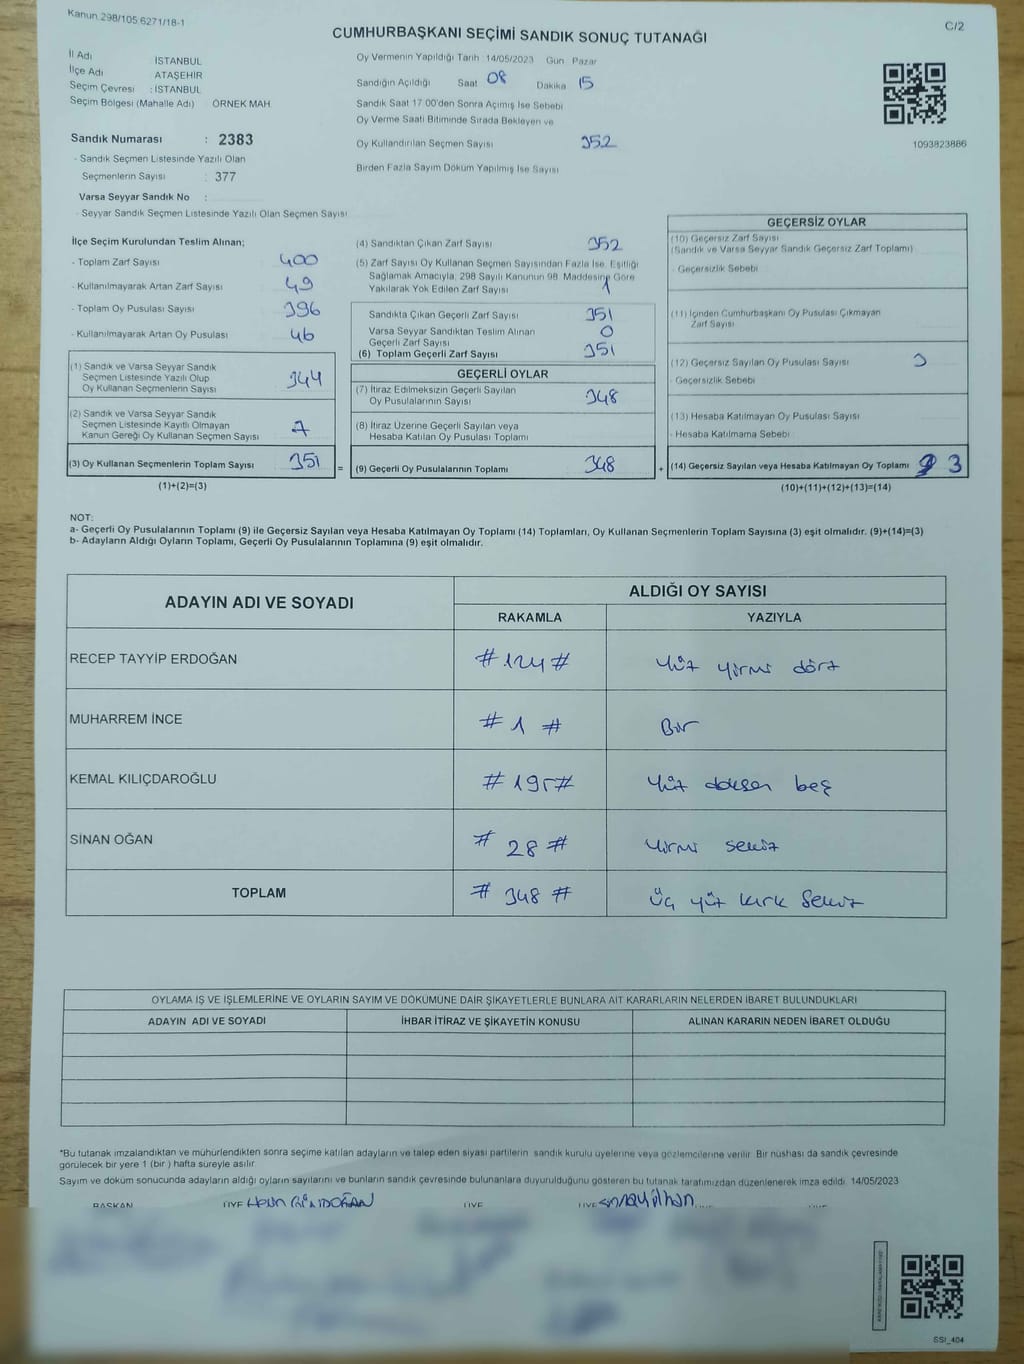 Kanun.298/105.6271/18-1
C/2
CUMHURBAŞKANI SEÇİMİ SANDIK SONUÇ TUTANAĞI
İl Adı İSTANBUL
İlçe Adı ATAŞEHİR
Seçim Çevresi : İSTANBUL
Seçim Bölgesi (Mahalle Adı) ÖRNEK MAH
Sandık Numarası : 2383
- Sandık Seçmen Listesinde Yazılı Olan
Seçmenlerin Sayısı : 377
Varsa Seyyar Sandık No :
- Seyyar Sandık Seçmen Listesinde Yazılı Olan Seçmen Sayısı
Oy Vermenin Yapıldığı Tarih 14/05/2023 Gün Pazar
Sandığın Açıldığı Saat 08 Dakika 15
Sandık Saat 17 00'den Sonra Açılmış İse Sebebi
Oy Verme Saati Bitiminde Sırada Bekleyen ve
Oy Kullandırılan Seçmen Sayısı 352
Birden Fazla Sayım Döküm Yapılmış İse Sayısı
1093823886
İlçe Seçim Kurulundan Teslim Alınan;
- Toplam Zarf Sayısı 400
- Kullanılmayarak Artan Zarf Sayısı 49
- Toplam Oy Pusulası Sayısı 396
- Kullanılmayarak Artan Oy Pusulası 46
(1) Sandık ve Varsa Seyyar Sandık
Seçmen Listesinde Yazılı Olup
Oy Kullanan Seçmenlerin Sayısı 344
(2) Sandık ve Varsa Seyyar Sandık
Seçmen Listesinde Kayıtlı Olmayan
Kanun Gereği Oy Kullanan Seçmen Sayısı 7
(3) Oy Kullanan Seçmenlerin Toplam Sayısı 351
(1)+(2)=(3)
(4) Sandıktan Çıkan Zarf Sayısı 352
(5) Zarf Sayısı Oy Kullanan Seçmen Sayısından Fazla İse, Eşitliği
Sağlamak Amacıyla, 298 Sayılı Kanunun 98. Maddesine Göre
Yakılarak Yok Edilen Zarf Sayısı 1
Sandıkta Çıkan Geçerli Zarf Sayısı 351
Varsa Seyyar Sandıktan Teslim Alınan
Geçerli Zarf Sayısı 0
(6) Toplam Geçerli Zarf Sayısı 351
GEÇERLİ OYLAR
(7) İtiraz Edilmeksizin Geçerli Sayılan
Oy Pusulalarının Sayısı 348
(8) İtiraz Üzerine Geçerli Sayılan veya
Hesaba Katılan Oy Pusulası Toplamı
= (9) Geçerli Oy Pusulalarının Toplamı 348
GEÇERSİZ OYLAR
(10) Geçersiz Zarf Sayısı
(Sandık ve Varsa Seyyar Sandık Geçersiz Zarf Toplamı)
- Geçersizlik Sebebi
(11) İçinden Cumhurbaşkanı Oy Pusulası Çıkmayan
Zarf Sayısı
(12) Geçersiz Sayılan Oy Pusulası Sayısı 3
- Geçersizlik Sebebi
(13) Hesaba Katılmayan Oy Pusulası Sayısı
- Hesaba Katılmama Sebebi
+ (14) Geçersiz Sayılan veya Hesaba Katılmayan Oy Toplamı 3
(10)+(11)+(12)+(13)=(14)
NOT:
a- Geçerli Oy Pusulalarının Toplamı (9) ile Geçersiz Sayılan veya Hesaba Katılmayan Oy Toplamı (14) Toplamları, Oy Kullanan Seçmenlerin Toplam Sayısına (3) eşit olmalıdır. (9)+(14)=(3)
b- Adayların Aldığı Oyların Toplamı, Geçerli Oy Pusulalarının Toplamına (9) eşit olmalıdır.
ADAYIN ADI VE SOYADI ALDIĞI OY SAYISI
RAKAMLA YAZIYLA
RECEP TAYYİP ERDOĞAN #124# Yüz yirmi dört
MUHARREM İNCE #1# Bir
KEMAL KILIÇDAROĞLU #195# Yüz doksan beş
SİNAN OĞAN #28# Yirmi sekiz
TOPLAM #348# üç yüz kırk Sekiz
OYLAMA İŞ VE İŞLEMLERİNE VE OYLARIN SAYIM VE DÖKÜMÜNE DAİR ŞİKAYETLERLE BUNLARA AİT KARARLARIN NELERDEN İBARET BULUNDUKLARI
ADAYIN ADI VE SOYADI İHBAR İTİRAZ VE ŞİKAYETİN KONUSU ALINAN KARARIN NEDEN İBARET OLDUĞU
*Bu tutanak imzalandıktan ve mühürlendikten sonra seçime katılan adayların ve talep eden siyasi partilerin sandık kurulu üyelerine veya gözlemcilerine verilir. Bir nüshası da sandık çevresinde
görülecek bir yere 1 (bir ) hafta süreyle asılır.
Sayım ve döküm sonucunda adayların aldığı oyların sayılarını ve bunların sandık çevresinde bulunanlara duyurulduğunu gösteren bu tutanak tarafımızdan düzenlenerek imza edildi. 14/05/2023
BAŞKAN ÜYE ÜYE ÜYE ÜYE
SSI_404